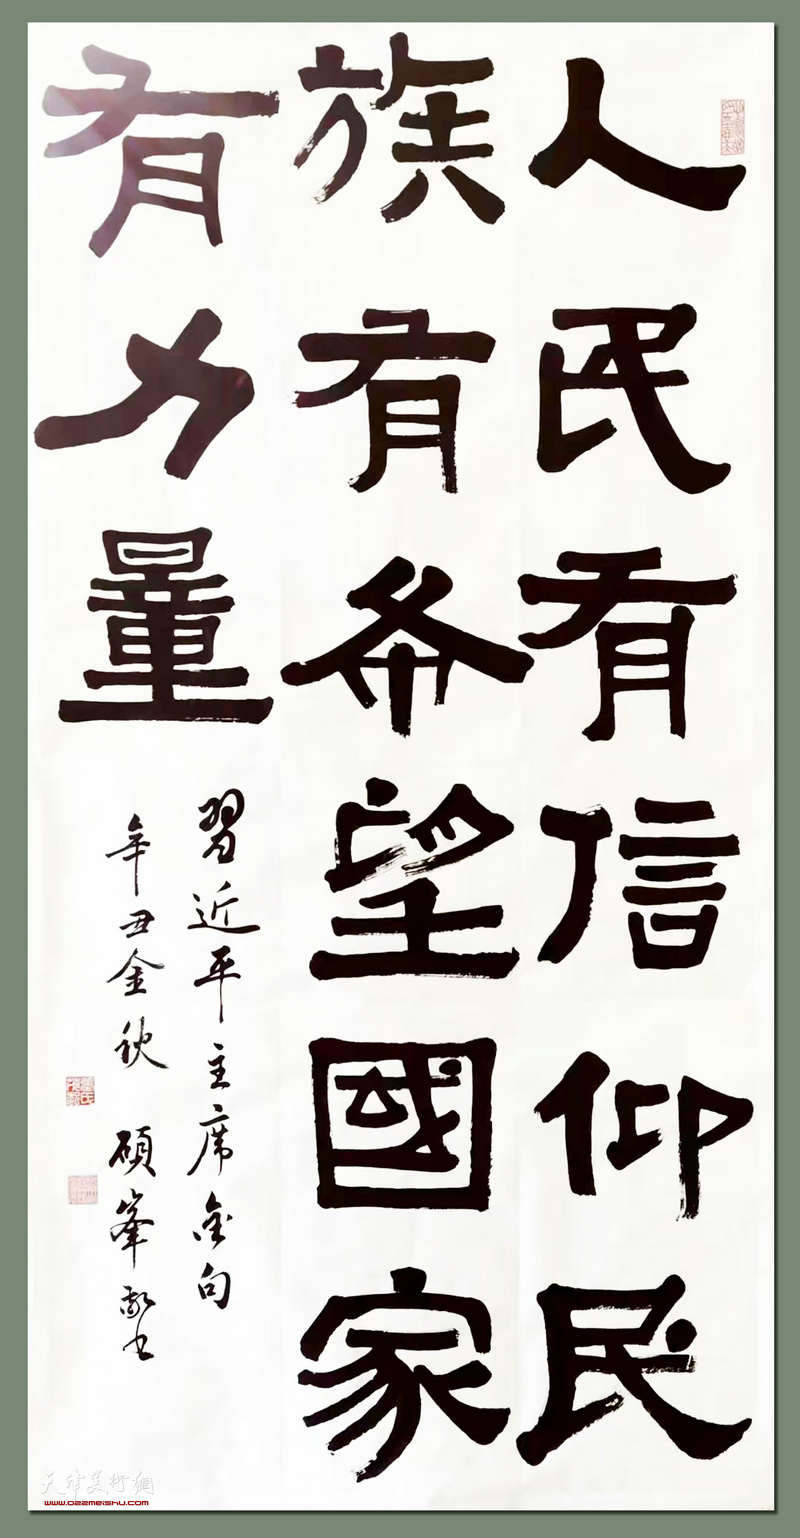 人民有信仰民
族有希望國家
有力量
習近平主席金句
辛丑金秋 碩峯敬书
天津美術網
www.022meishu.com